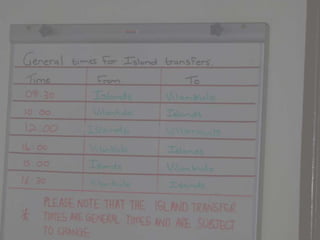 General times for Island transfers.
Time From To
09:30 Islands Vilankulo
10:00 Vilankulo Islands
12:00 Islands Vilankulo
14:00 Vilankulo Islands
15:00 Islands Vilankulo
16:30 Vilankulo Islands
* PLEASE NOTE THAT THE ISLAND TRANSFER
TIMES ARE GENERAL TIMES AND ARE SUBJECT
TO CHANGE